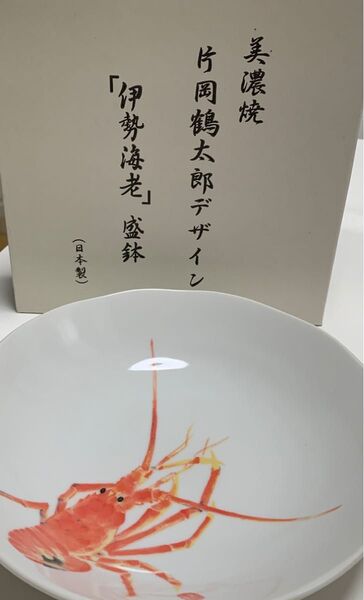 美濃焼
片岡鶴太郎デザイン
「伊勢海老」盛鉢
(日本製)